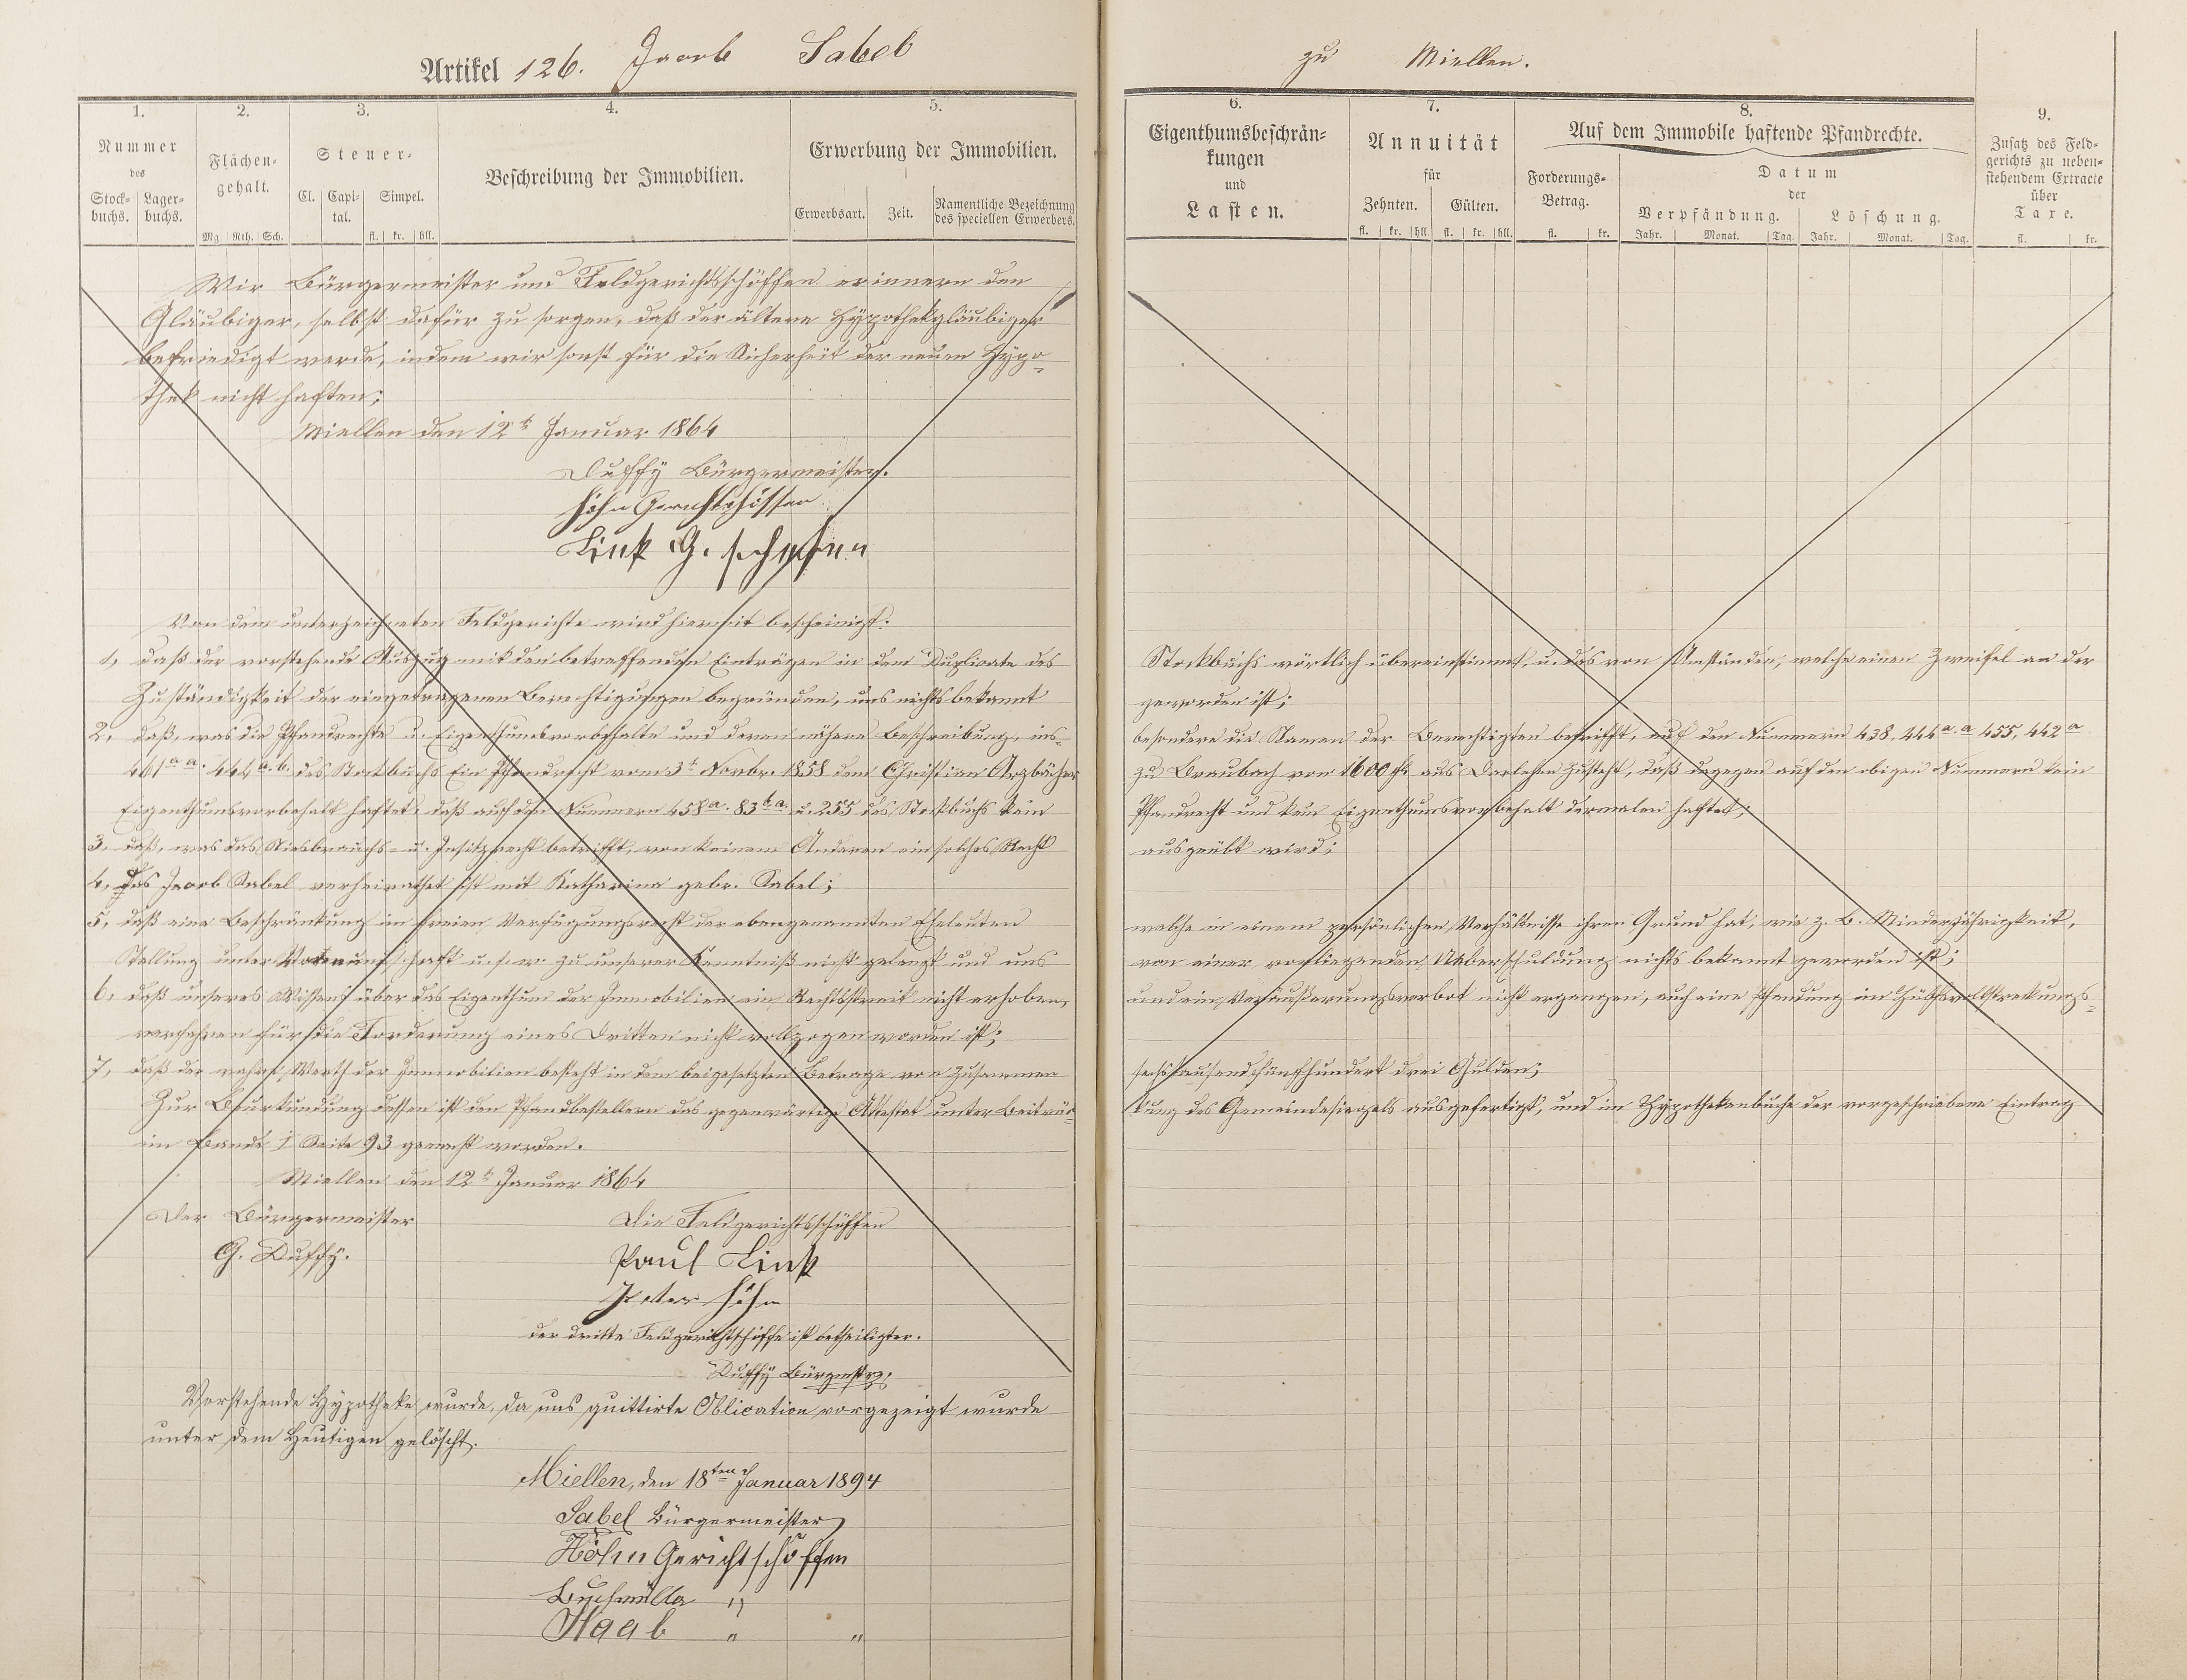 Artikel 126. Jacob Sabel zu Miellen.
1. 2. 3. 4. 5. 6. 7. 8. 9.
Nummer des
Stock-buchs. Lager-buchs.
Flächen-gehalt.
Mg. Rth. Sch.
Steuer-
Cl. Capi-tal. Simpel.
fl. kr. hll.
Beschreibung der Immobilien.
Erwerbung der Immobilien.
Erwerbsart. Zeit. Namentliche Bezeichnung des speciellen Erwerbers.
Eigenthumsbeschrän-
kungen
und
Lasten.
Annuität
für
Zehnten. Gülten.
fl. kr. hll. fl. kr. hll.
Auf dem Immobile haftende Pfandrechte.
Forderungs-Betrag.
fl. kr.
Datum
der
Verpfändung. Löschung.
Jahr. Monat. Tag. Jahr. Monat. Tag.
Zusatz des Feld-
gerichts zu neben-
stehendem Extracte
über
Taxe.
fl. kr.
Wir Bürgermeister und Feldgerichtsschöffen erinnern den
Gläubiger, selbst dafür zu sorgen, daß der ältere Hypothekgläubiger
befriedigt werde, indem wir sonst für die Sicherheit der neuen Hypo-
thek nicht haften;
Miellen den 12t Januar 1864
Duffÿ Bürgermeister.
Höhn Gerichtschöffen
Link G. schefen
Von dem unterzeichneten Feldgerichte wird hiermit bescheinigt:
1, daß der vorstehende Auszug mit den betreffenden Einträgen in dem Duplicate des Stockbuchs wörtlich übereinstimmt, u. das von Umständen, welche einen Zweifel an der
Zuständigkeit der eingetragenen Berechtigungen begründen, uns nichts bekannt geworden ist;
2, daß, was die Pfandrechte u. Eigenthumsvorbehalte und deren nähere Beschreibung, ins- besondere die Namen der Berechtigten betrifft, auf den Nummern 438, 444 a. a 455, 442 a
461 a a. 444 a. b. des Stockbuchs Ein Pfandrecht vom 3t Novbr. 1858 dem Christian Arzbächer zu Braubach von 1600 fl. aus Darlehen zusteht, daß dagegen auf den obigen Nummern kein
Eigenthumsvorbehalt haftet, daß auf den Nummern 458 a. 83 b a. u. 255 des Stockbuchs kein Pfandrecht und kein Eigenthumsvorbehalt dermalen haftet;
3, daß, was das Niesbrauchs- u. Insitzrecht betrifft, von keinem Anderen ein solches Recht ausgeübt wird;
4, das Jacob Sabel verheirathet ist mit Katharina gebr. Sabel;
5, daß eine Beschränkung im freien Verfügungsrecht der obengenannten Eheleuten welche in einem persönlichen Verhältnisse ihren Grund hat, wie z. B. Minderjährigkeit,
Stellung unter Vormundschaft u. s. w. zu unserer Kenntniß nicht gelangt und uns von einer vorliegenden Ueberschuldung nichts bekannt geworden ist;
6, daß unseres Wissens über das Eigenthum der Immobilien ein Rechtsstreit nicht erhoben, und ein Veräußerungsverbot nicht ergangen, auch eine Pfändung im Hülfsvollstrekungs-
verfahren für die Forderung eines Dritten nicht vollzogen worden ist;
7, daß der wahre Werth der Immobilien besteht in dem beigesetzten Betrage von zusammen sechstausendfünfhundert drei Gulden;
Zur Beurkundung dessen ist den Pfandbestellern das gegenwärtige Attestat unter Beidrük- kung des Gemeindesiegels ausgefertigt, und im Hypothekenbuche der vorgeschriebene Eintrag
im Bande 1 Seite 93 gemacht worden.
Miellen den 12t Januar 1864
Der Bürgermeister Die Feldgerichtsschöffen
G. Duffÿ. Paul Link
Peter Höhn
der dritte Feldgerichtschöffe ist betheiligter.
Duffÿ Bürgmstr.
Vorstehende Hypotheke wurde, da uns quittirte Oblication vorgezeigt wurde
unter dem Heutigen gelöscht.
Miellen, den 18ten Januar 1894
Sabel Bürgermeister
Höhn Gerichtschöffen
Buchmüller "
Haab " "